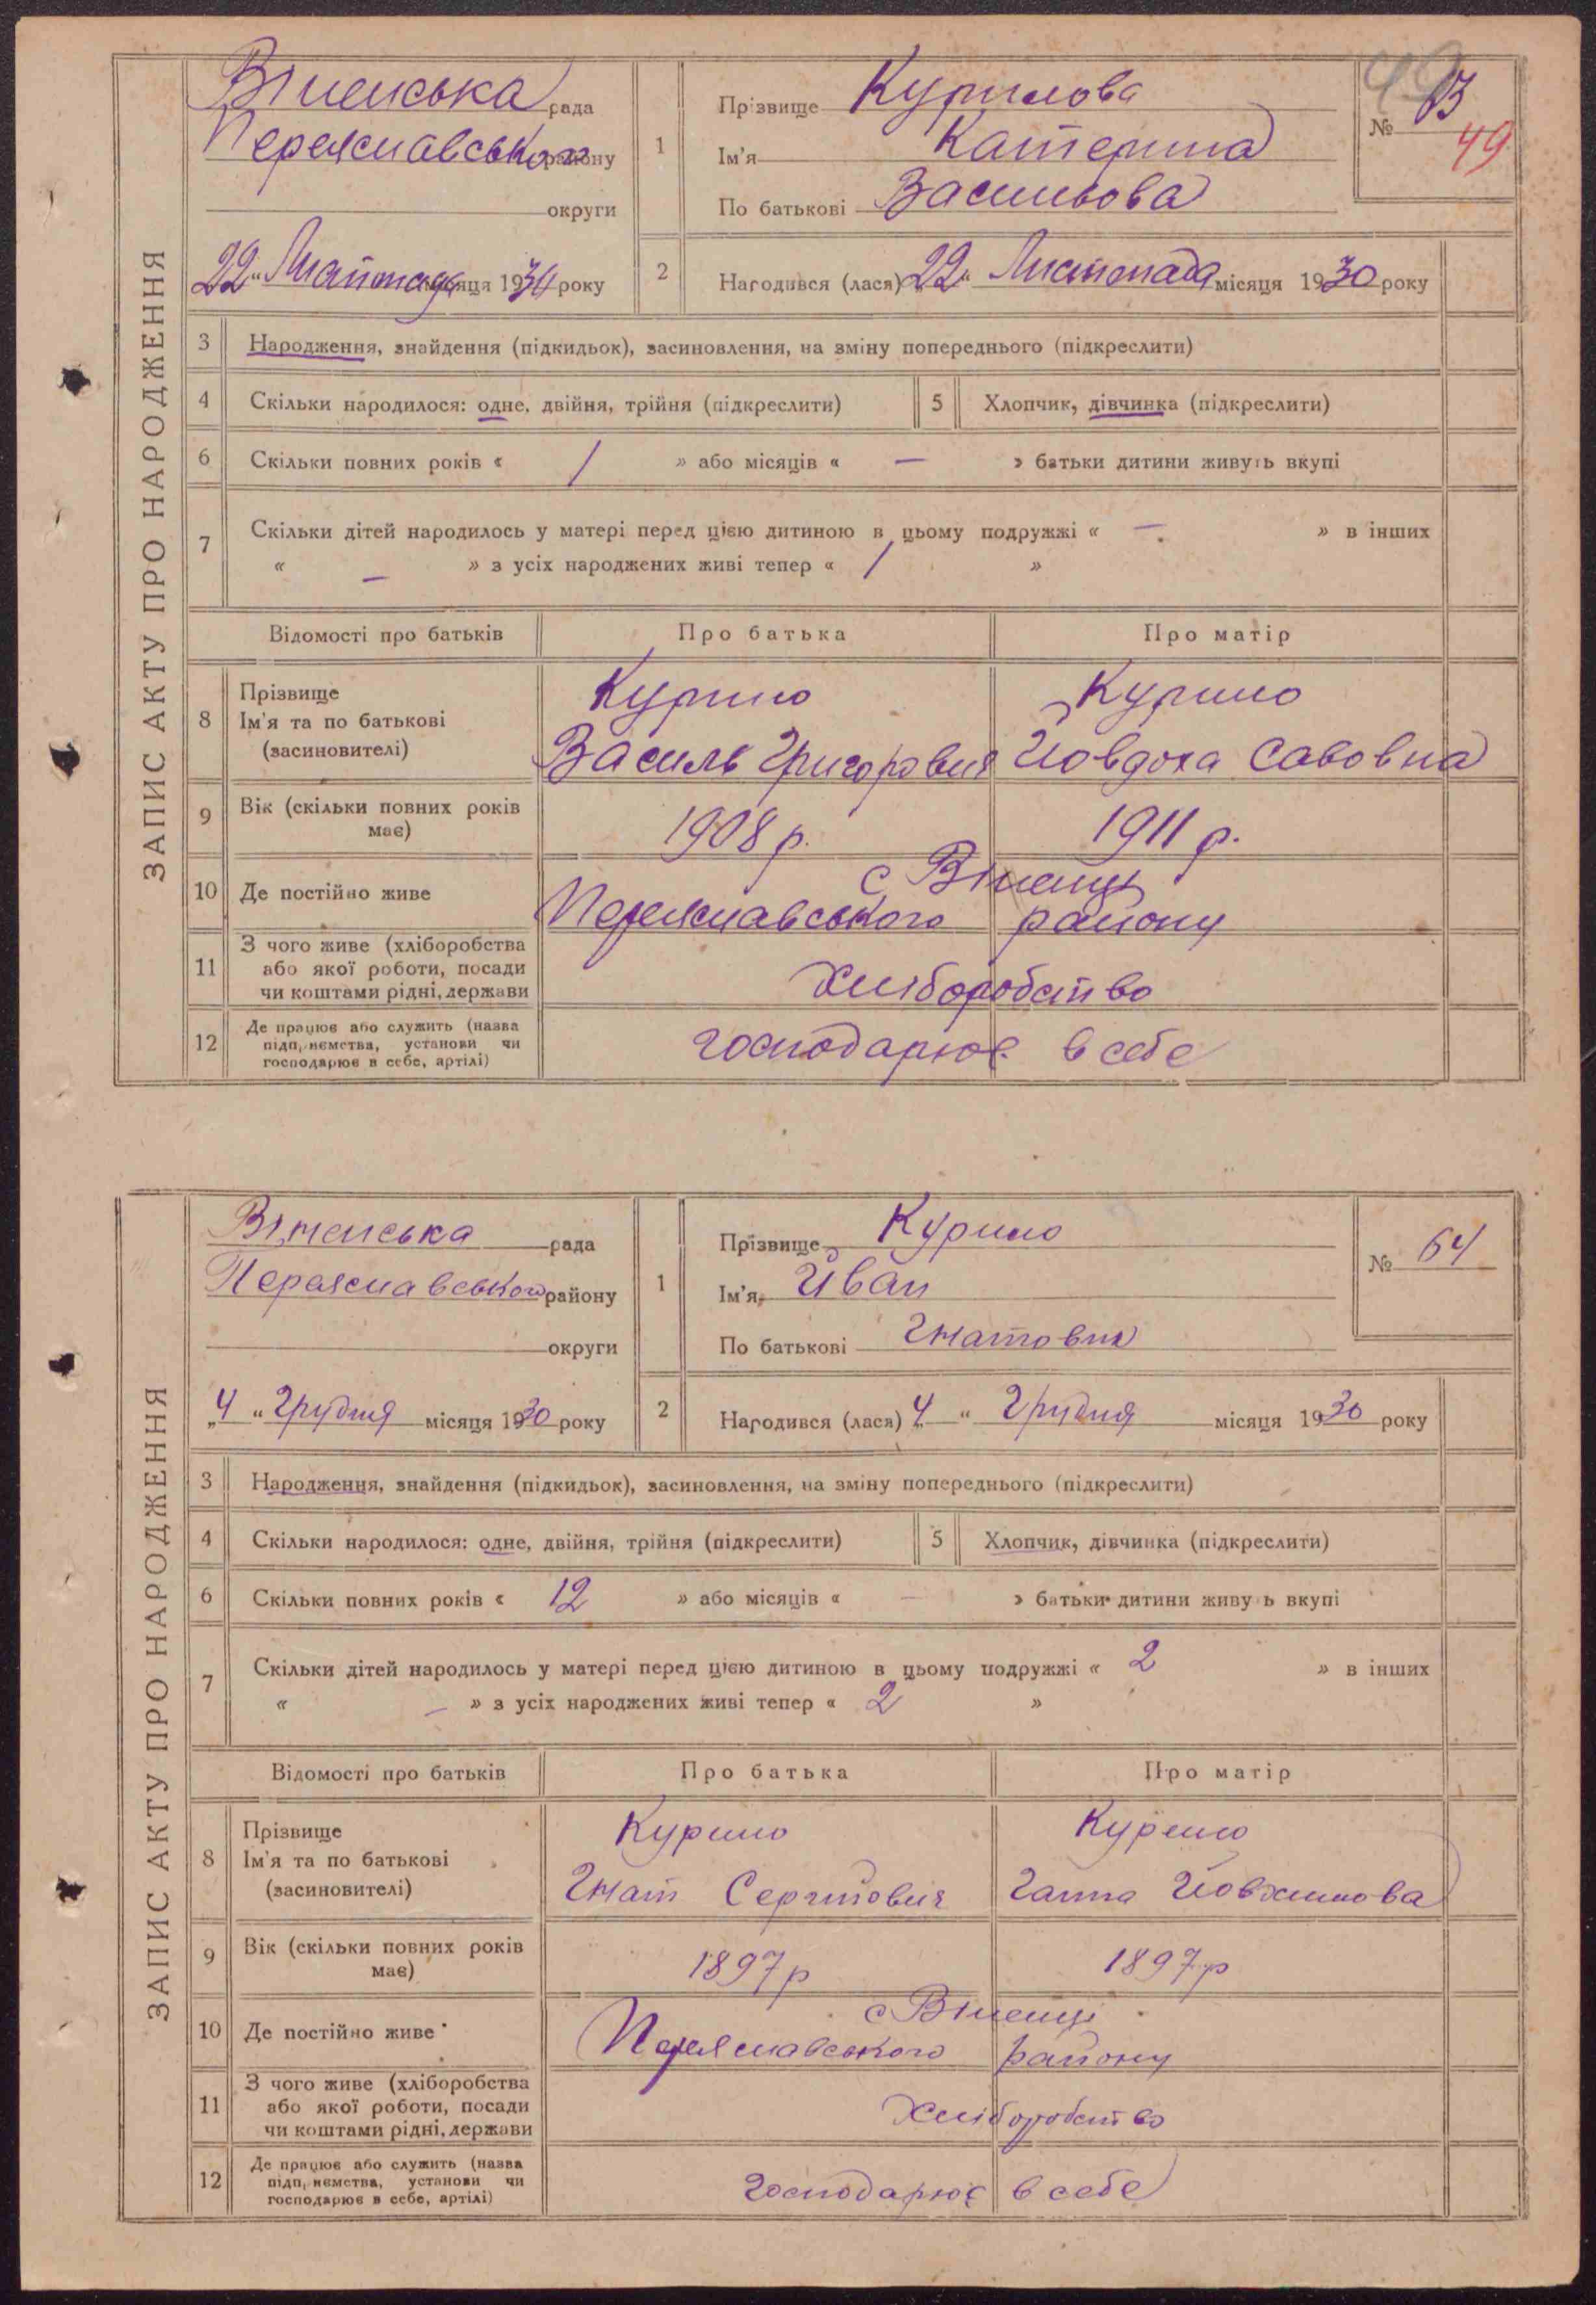 ЗАПИС АКТУ ПРО НАРОДЖЕННЯ
Віненська рада
Переяславського району
округи
22 " Листопада місяця 1930 року
1
Прізвище Курилова
Ім'я Катерина
По батькові Васильова
№ 63
49
49
2
Народився (лася) 22 " Листопада місяця 1930 року
3 Народження, знайдення (підкидьок), засиновлення, на зміну попереднього (підкреслити)
4 Скільки народилося: одне, двійня, трійня (підкреслити)
5 Хлопчик, дівчинка (підкреслити)
6 Скільки повних років « 1 » або місяців « — » батьки дитини живуть вкупі
7 Скільки дітей народилось у матері перед цією дитиною в цьому подружжі « — » в інших
« — » з усіх народжених живі тепер « 1 »
Відомості про батьків Про батька Про матір
8 Прізвище
Ім'я та по батькові
(засиновителі)
Курило
Василь Григорович
Курило
Йовдоха Савовна
9 Вік (скільки повних років
має)
1908 р.
1911 р.
10 Де постійно живе
с Віненці
Переяславського району
11 З чого живе (хліборобства
або якої роботи, посади
чи коштами рідні, держави
Хліборобство
12 Де працює або служить (назва
підприємства, установи чи
господарює в себе, артілі)
господарює в себе
ЗАПИС АКТУ ПРО НАРОДЖЕННЯ
Віненська рада
Переяславського району
округи
„4 " Грудня місяця 1930 року
1
Прізвище Курило
Ім'я Йван
По батькові Гнатович
№ 64
2
Народився (лася) „4 " Грудня місяця 1930 року
3 Народження, знайдення (підкидьок), засиновлення, на зміну попереднього (підкреслити)
4 Скільки народилося: одне, двійня, трійня (підкреслити)
5 Хлопчик, дівчинка (підкреслити)
6 Скільки повних років « 12 » або місяців « — » батьки дитини живуть вкупі
7 Скільки дітей народилось у матері перед цією дитиною в цьому подружжі « 2 » в інших
« — » з усіх народжених живі тепер « 2 »
Відомості про батьків Про батька Про матір
8 Прізвище
Ім'я та по батькові
(засиновителі)
Курило
Гнат Сергійович
Курило
Ганна Йовхимова
9 Вік (скільки повних років
має)
1897 р
1897 р
10 Де постійно живе
с Віненці
Переяславського району
11 З чого живе (хліборобства
або якої роботи, посади
чи коштами рідні, держави
Хліборобство
12 Де працює або служить (назва
підприємства, установи чи
господарює в себе, артілі)
Господарює в себе